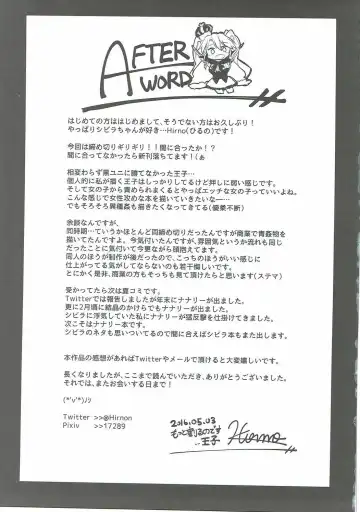 AFTER
WORD
はじめての方ははじめまして、そうでない方はお久しぶり！
やっぱりシビラちゃんが好き…Hirno(ひるの)です！
今回は締め切りギリギリ！！間に合ったか！？
間に合ってなかったら新刊落ちてます！(ぁ
相変わらず黒ユニに勝てなかった王子…
個人的に私が描く王子はしっかりしてるけど押しに弱い感じです。
そして女の子から責められまくるとやっぱエッチな女の子っていいよね。
こんな感じで女性攻めな本を描いていきたいな…
でもそろそろ異種姦も描きたくなってきてる(優柔不断)
余談なんですが、
同時期…ていうかほとんど同締め切りだったんですが商業で青姦物を
描いてたんですよ。今気付いたんですが、雰囲気というか流れも同じ
だったことに気付いて今更ながら頭抱えてます。
同人のほうが制作が後だったので、こっちのほうがいい感じに
仕上がってる気がしてならないのも若干悔しいです。
とにかく是非、商業の方もそっちも見て頂けたらと思います(ステマ)
受かってたら次は夏コミです。
Twitterでは報告しましたが年末にナナリーが出ました。
更に2月頃に結晶のかけらでもナナリーが出ました。
シビラに浮気していた私にナナリーが猛反撃を仕掛けてきました。
次こそはナナリー本です。
シビラのネタも思いついてるので間に合えばシビラ本もまた出します。
本作品の感想があればTwitterやメールで頂けると大変嬉しいです。
長くなりましたが、ここまで読んでいただき、ありがとうございました。
それでは、またお会いする日まで！
(*'v'*)ﾉｼ
Twitter >>@Hirnon
Pixiv >>17289
2016.05.03
もっと割るのです
…王子
Hirno